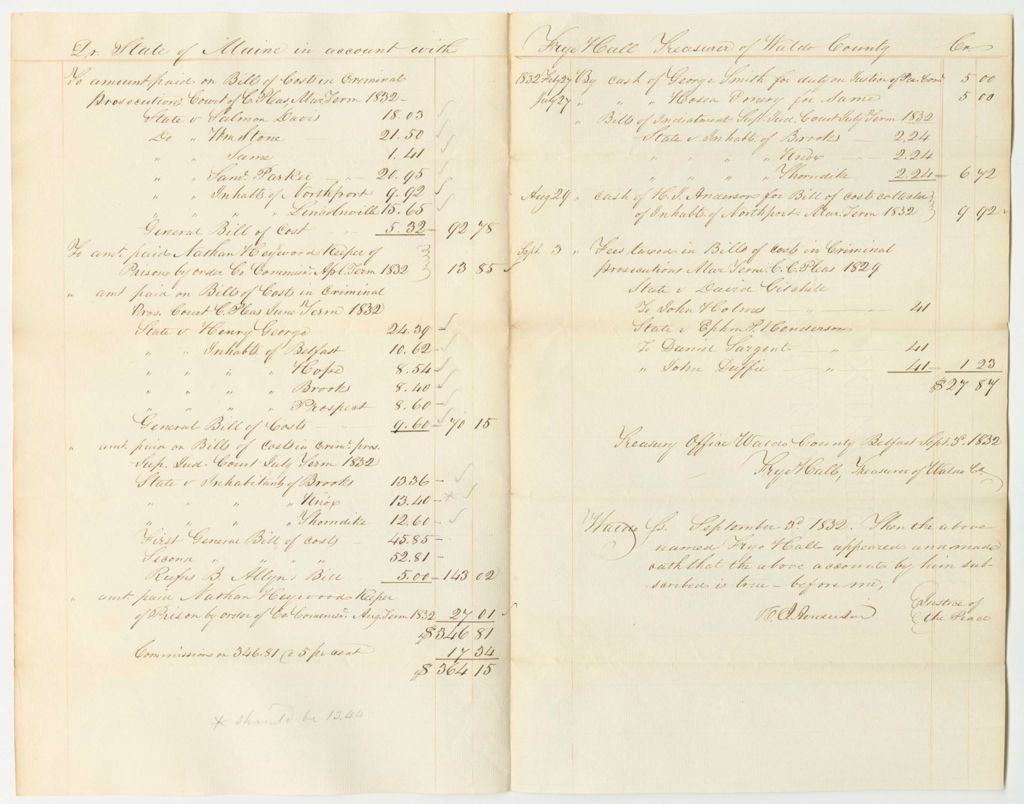 Dr. State of Maine in account with
To amount paid on Bill of Cost in Criminal
Prosecutions Court of C. Pleas Mar. Term 1832 -
State v Salmon Davis 18.03
Do " Wm Stone 21.50
" " Same 1.41
" " Saml. Parker 20.95
" " Inhabts of Northport 9.92
" " " " Lincolnville 15.65
General Bill of Cost 5.32 - 92 78
To amt. paid Nathan Heywood Keeper of
Prisons by order Co. Commisrs. Apl. Term 1832 13 85
" amt paid on Bills of Costs in Criminal
Pros. Court C. Pleas June Term 1832
State v Henry George 24.39
" " Inhabts of Belfast 10.62
" " " " Hope 8.54
" " " " Brooks 8.40
" " " " Prospect 8.60
General Bill of Costs 9.60 - 70 15
" amt. paid on Bills of Costs in Criml. pros.
Sup. Jud. Court July Term 1832
State v Inhabitants of Brooks 13.36 -
" " " " Knox 13.40 - *
" " " " Thorndike 12.60 -
First General Bill of costs 45.85 -
Second " " " " 52.81 -
Rufus B. Allyn's Bill 5.00 - 143 02
" amt. paid Nathan Heywood Keeper
of Prison by order of Co Commisrs. Aug. Term 1832 27 01
$346 81
Commissions on 346.81 @ 5 per cent 17 34
$364 15
* should be 13.44
Frye Hall Treasurer of Waldo County Cr.
1832 Feb 27 By cash of George Smith for duty on 5 00
July 27 " " " Hosea for same 5 00
" Bills of Indictment Sup. Jud. Court July Term 1832
State v Inhabts of Brooks 2.24
" " " " Knox 2.24
" " " " Thorndike 2.24 - 6 72
Aug 29 " cash of H. J. Anderson for Bill of cost collected
of Inhabts of Northport Mar. Term 1832 9 92
Sept. 3 " Fees taxed in Bills of costs in Criminal
prosecutions Mar. Term C. C. Pleas 1829
State v David
To John Holmes 41
State v Ephm. P. Henderson
To Daniel Sargent " 41
" John Duffie " 41 - 1 23
$27 87
Treasury Office Waldo County Belfast Sept. 3d. 1832
Frye Hall, Treasurer of Waldo Co.
Waldo Ss. September 3d. 1832. Then the above
named Frye Hall appeared and made
oath that the above account by him sub-
scribed is true - before me,
H. J. Anderson Justice of
the Peace